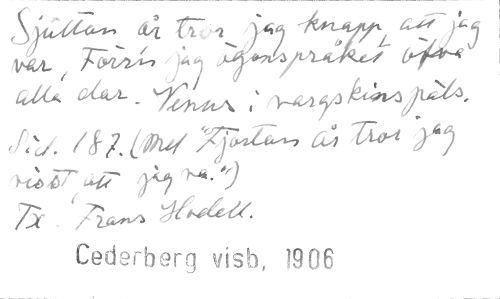 Sjuttan år tror jag knapp, att jag
var, Förrn jag ögonspråket öfva
alla dar. Venus i vargskinspäls.
Sid. 187. (Mel "Fjortan år tror jag
visst att jag va.")
Tx. Frans Hodell.
Cederberg visb, 1906